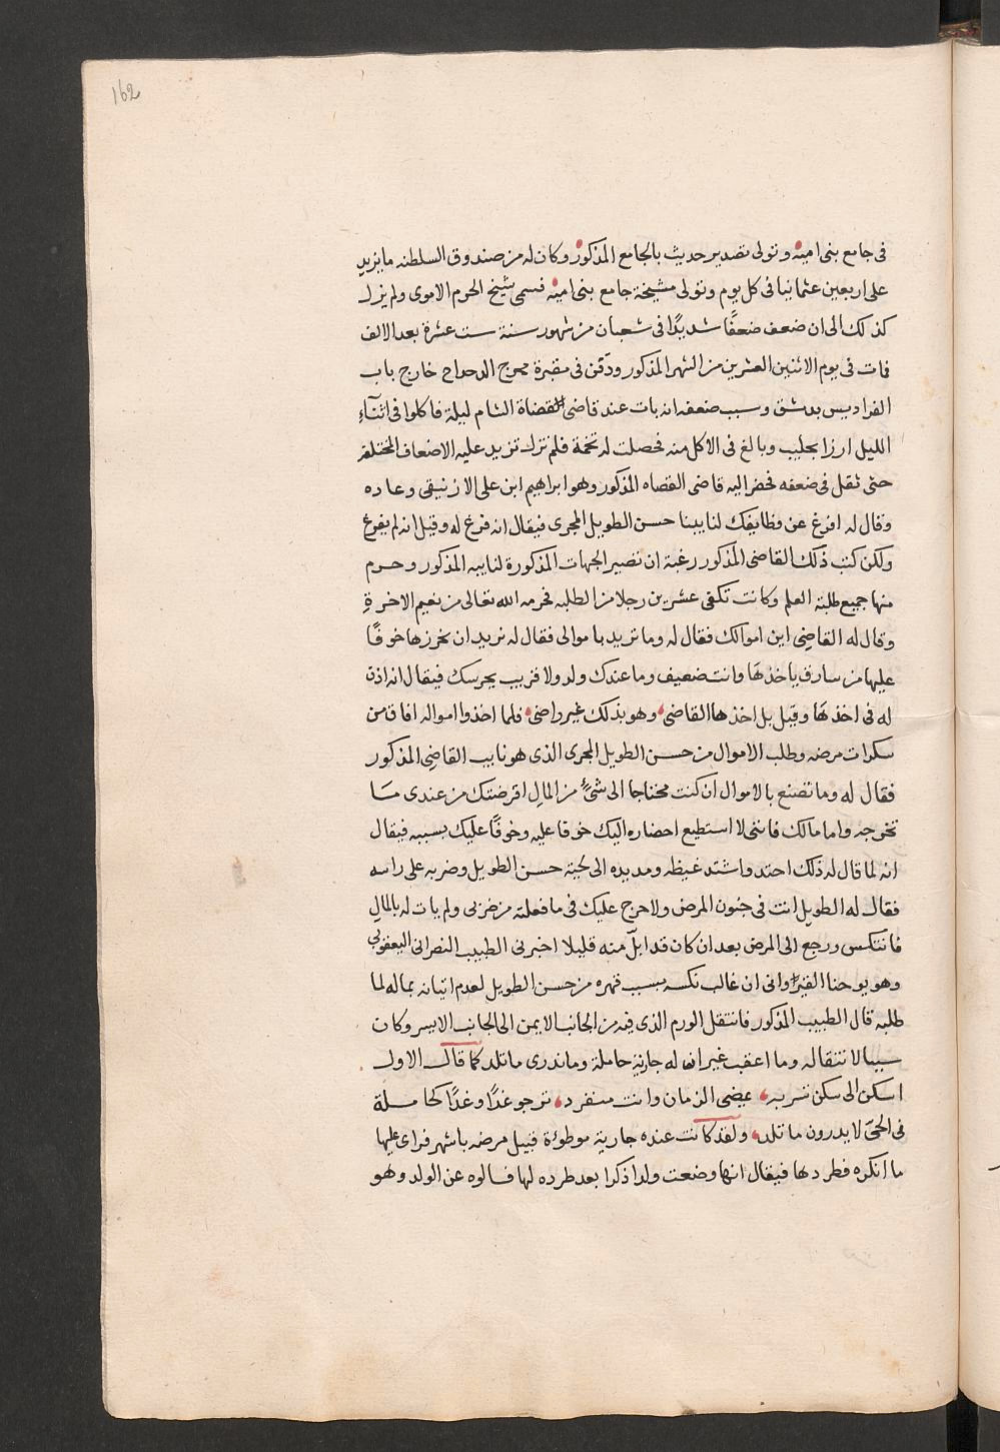 162
فى جامع بنى امية وتولى تصدير حديث بالجامع المذكور وكان له من صندوق السلطنه ما يزيد
على اربعين عثمانيا فى كل يوم وتولى مشيخة جامع بنى امية فسمى شيخ الحرم الاموى ولم يزل
كذلك الى ان ضعف ضعفًا شديدًا فى شعبان من شهور سنة ست عشرة بعد الالف
فات فى يوم الاثنين العشرين من الشهر المذكور ودفن فى مقبرة مرج الدحداح خارج باب
الفراديس بدمشق وسبب ضعفه انه بات عند قاضى القضاة الشام ليلة فاكلوا فى اثنآء
الليل ارزا بحليب وبالغ فى الاكل منه فحصلت له تخمة فلم تزل تزيد عليه الاضعاف المختلفه
حتى ثقل فى ضعفه فحضر اليه قاضى القضاه المذكور وهو ابراهيم ابن على الازنيقى وعاده
وقال له افرغ عن وظايفك لنايبنا حسن الطويل المجرى فيقال انه فرغ له وقيل انه لم يفرغ
ولكن كتب ذلك القاضى المذكور رغبة ان تصير الجهات المذكورة لنايبه المذكور وحرم
منها جميع طلبة العلم وكانت تكفى عشرين رجلا من الطلبه فحرمه الله تعالى من نعيم الاخرةِ
وقال له القاضِى اين اموالك فقال له وما تريد باموالى فقال له نريد ان نحرزها خوفًا
عليها من سارق ياخذهَا وانت ضعيف وما عندك ولد ولا قريب يحرسك فيقال انه اذن
له فى اخذهَا وقيل بل اخذها القاضى وهو بذلك غير راضى فلما اخذوا امواله افاق من
سكرات مرضه وطلب الاموال من حسن الطويل المجرى الذى هو نايب القاضِى المذكور
فقال له وما تصنع بالاموال ان كنت محتاجا الى شىٔ من المال اقرضتك من عندى مَا
تخرجه واما مالك فاننى لا استطيع احضاره اليك خوفا عليه وخوفًا عليك بسببه فيقال
انه لما قال له ذلك احتد واشتد غيظه ومد يده الى لحية حسن الطويل وضربه على راسه
فقال له الطويل انت فى جنون المرض ولا حرج عليك فى ما فعلته من ضربى ولم يات له بالمالِ
فانتكس ورجع الى المرض بعد ان كان قد ابلّ منه قليلا اخبرنى الطبيب النصرانى اليعقوبى
وهو يوحنا ان غالب نكسه بسبب قهره من حسن الطويل لعدم اتيانه بماله لما
طلبه قال الطبيب المذكور فانتقل الورم الذى فيه من الجانب الايمن الى الجانب الايسر وكان
سببا لانتقاله وما اعقب غير ان له جارية حاملة وما ندرى ما تلد كما قال الاول
اسكن الى سكن تسر به يمضى الزمان وانت منفرد ترجو غدًا وغدًا كحاملة
فى الحىّ لا يدرون ما تلد ولقد كانت عنده جارية موطوءة قبيل مرضه باشهر فراى عليها
ما انكره فطردها فيقال انها وضعت ولدا ذكرا بعد طرده لها فسالوه عن الولد وهو